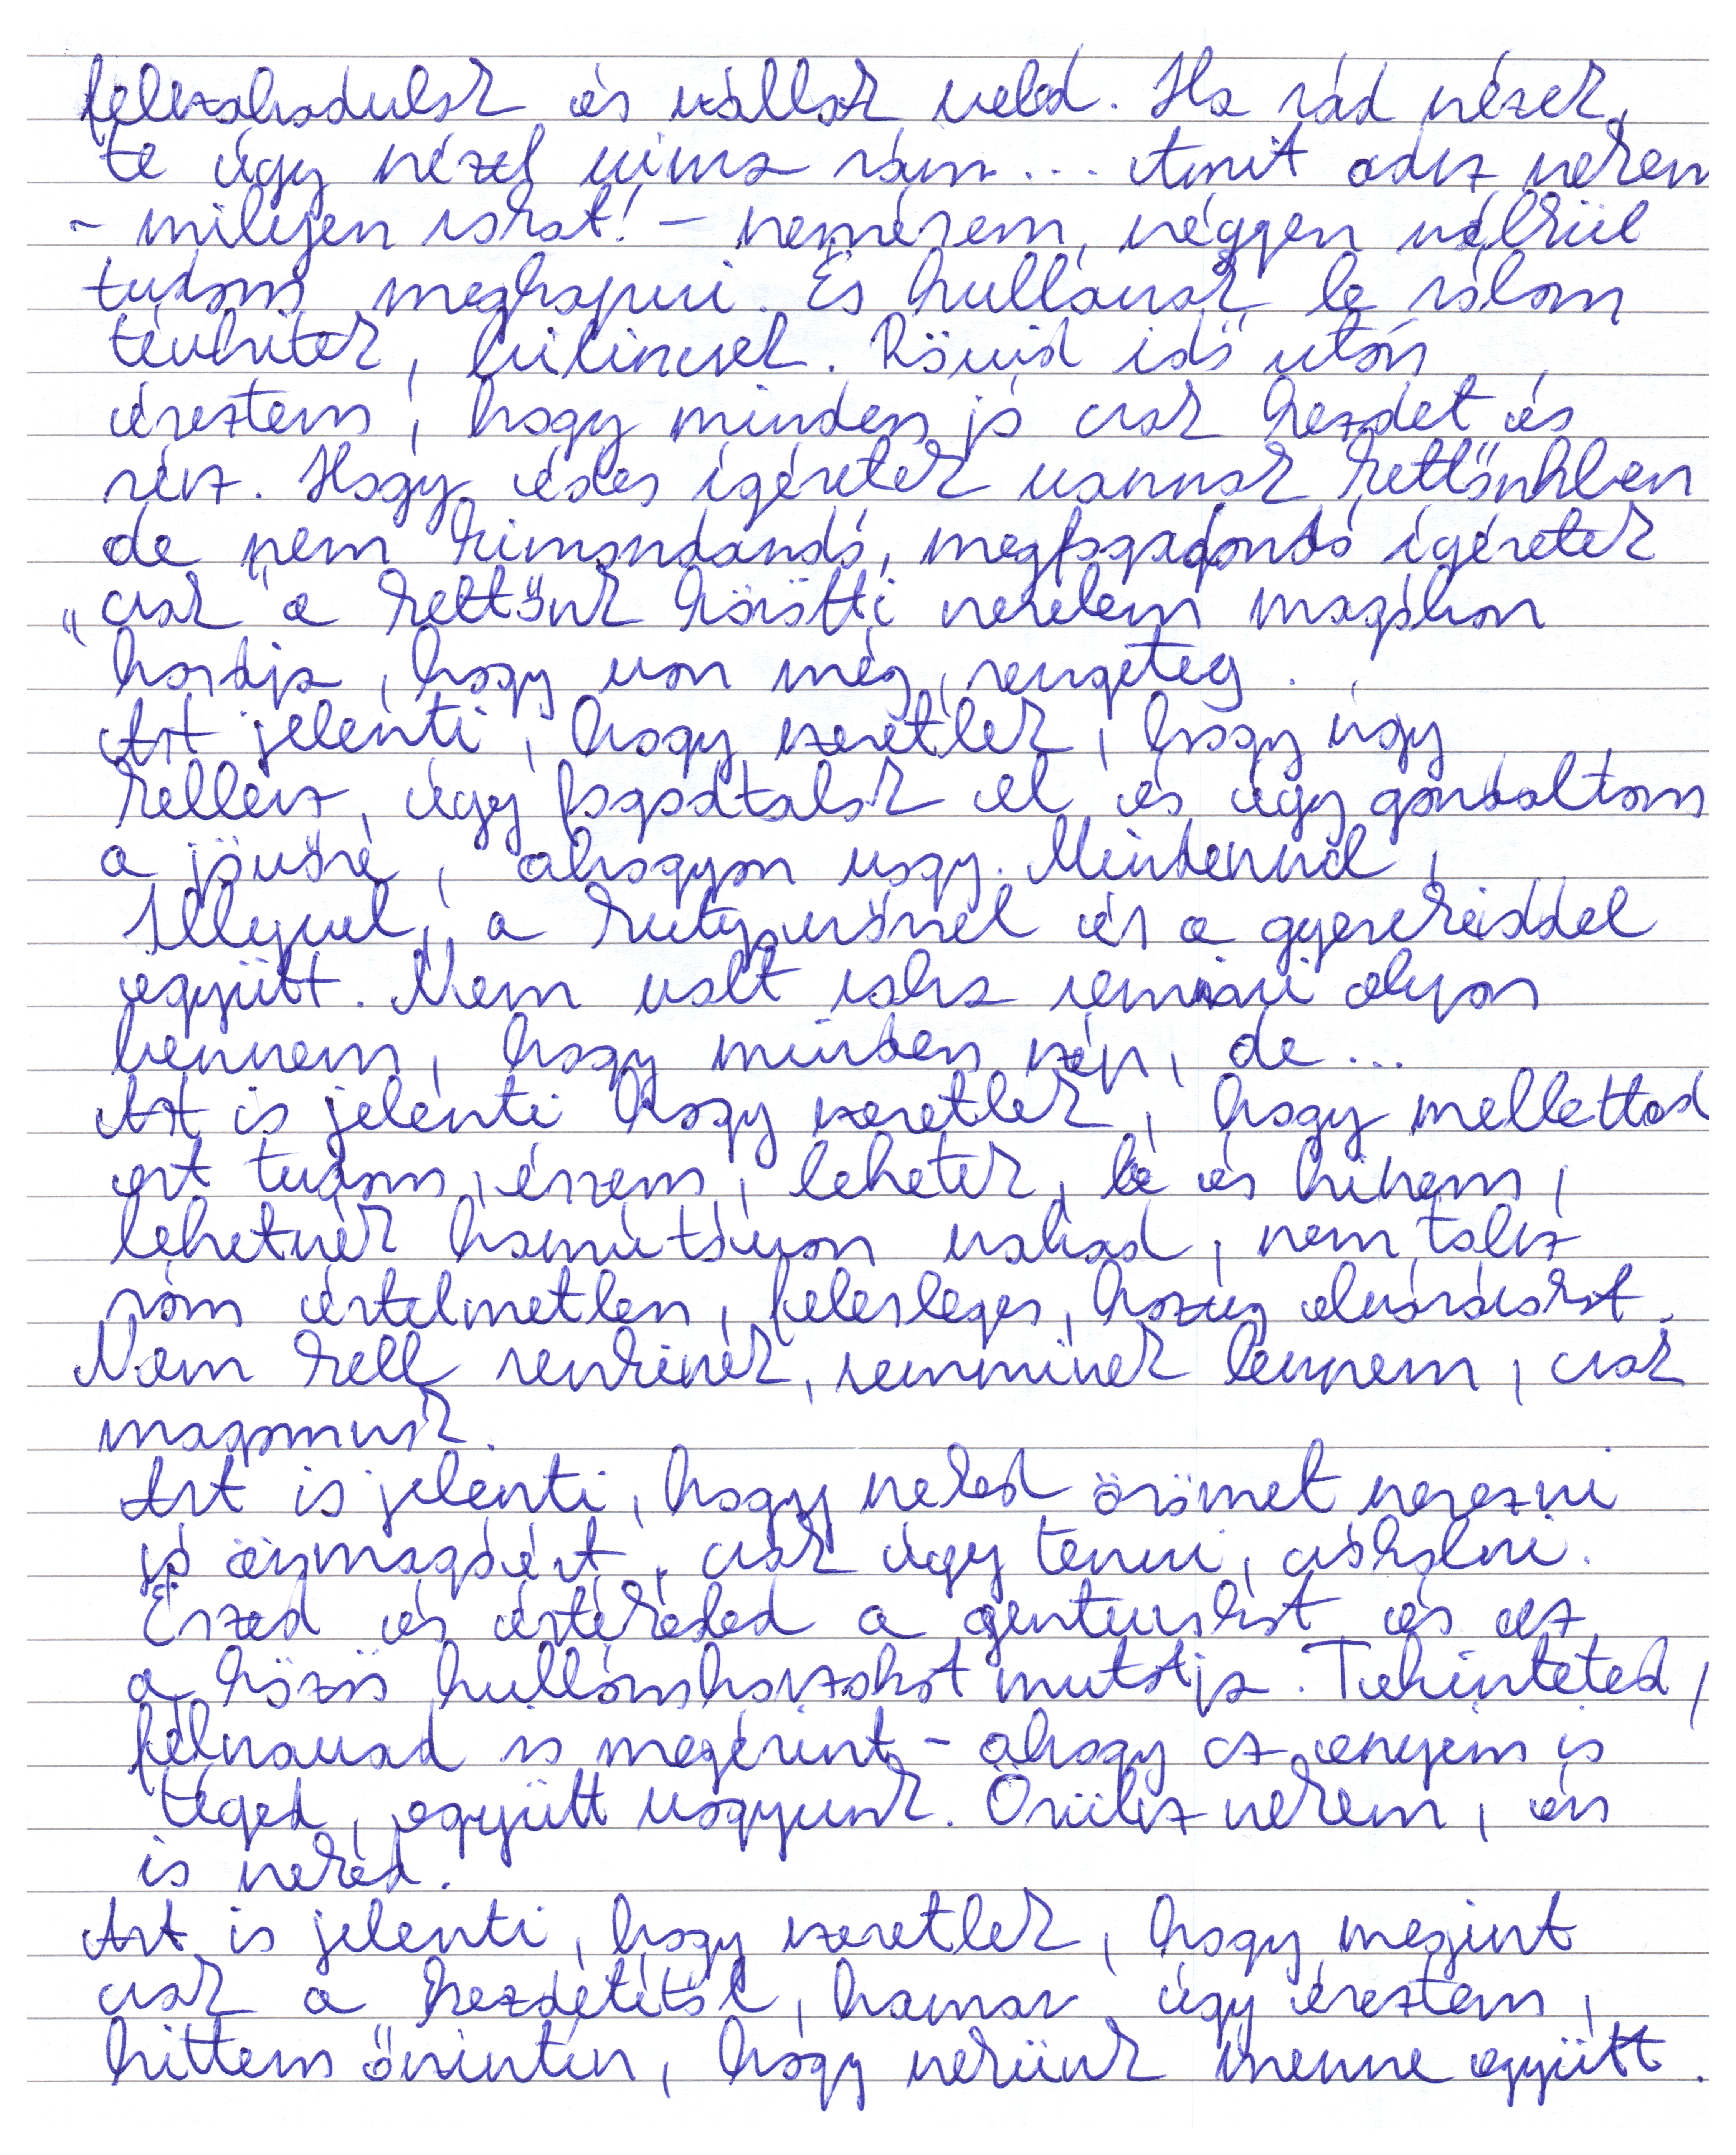 felszabadulok és szállok veled. Ha rád nézek,
te úgy nézel vissza rám... Amit adsz nekem
- milyen sokat! - nemésem, szégyen nélkül
tudom megkapni. És hullanak le rólam
tévhitek, bilincsek. Rövid idő után
éreztem, hogy minden jó csak kezdet és
rész. Hogy édes ígéretek vannak kettőnkben
de nem kimondandó, megfogadandó ígéretek
"csak" a kettőnk közötti szerelem magában
hordja, hogy van még, rengeteg.
Azt jelenti, hogy szeretlek, hogy úgy
kellesz, úgy fogadtalak el és úgy gondoltam
a jövőre, ahogyan vagy. Mindennel,
a kutyusőnel és a gyerekeiddel
együtt. Nem volt soha semmi olyan
bennem, hogy minden szép, de...
Azt is jelenti hogy szeretlek, hogy melletted
ezt tudom, érzem, lehetek, lé és hibám,
lehetnék hamutávon szabad, nem tolsz
rám értelmetlen, felesleges, hazug elvárásokat.
Nem kell senkinek, semminek lennem, csak
magamnak.
Azt is jelenti, hogy neked örömet szerezni
jó önmagáért, csak úgy tenni, csókolni.
Eszed és értékeled a gesztusokat és ez
a közös hullámhosszokat mutatja. Tekinteted,
félszavad is megérint - ahogy az enyém is
téged, együtt vagyunk. Örülsz nekem, én
is neked.
Azt is jelenti, hogy szeretlek, hogy megint
csak a kezdetétől, hamar úgy éreztem,
hittem őszintén, hogy nekünk menne együtt.